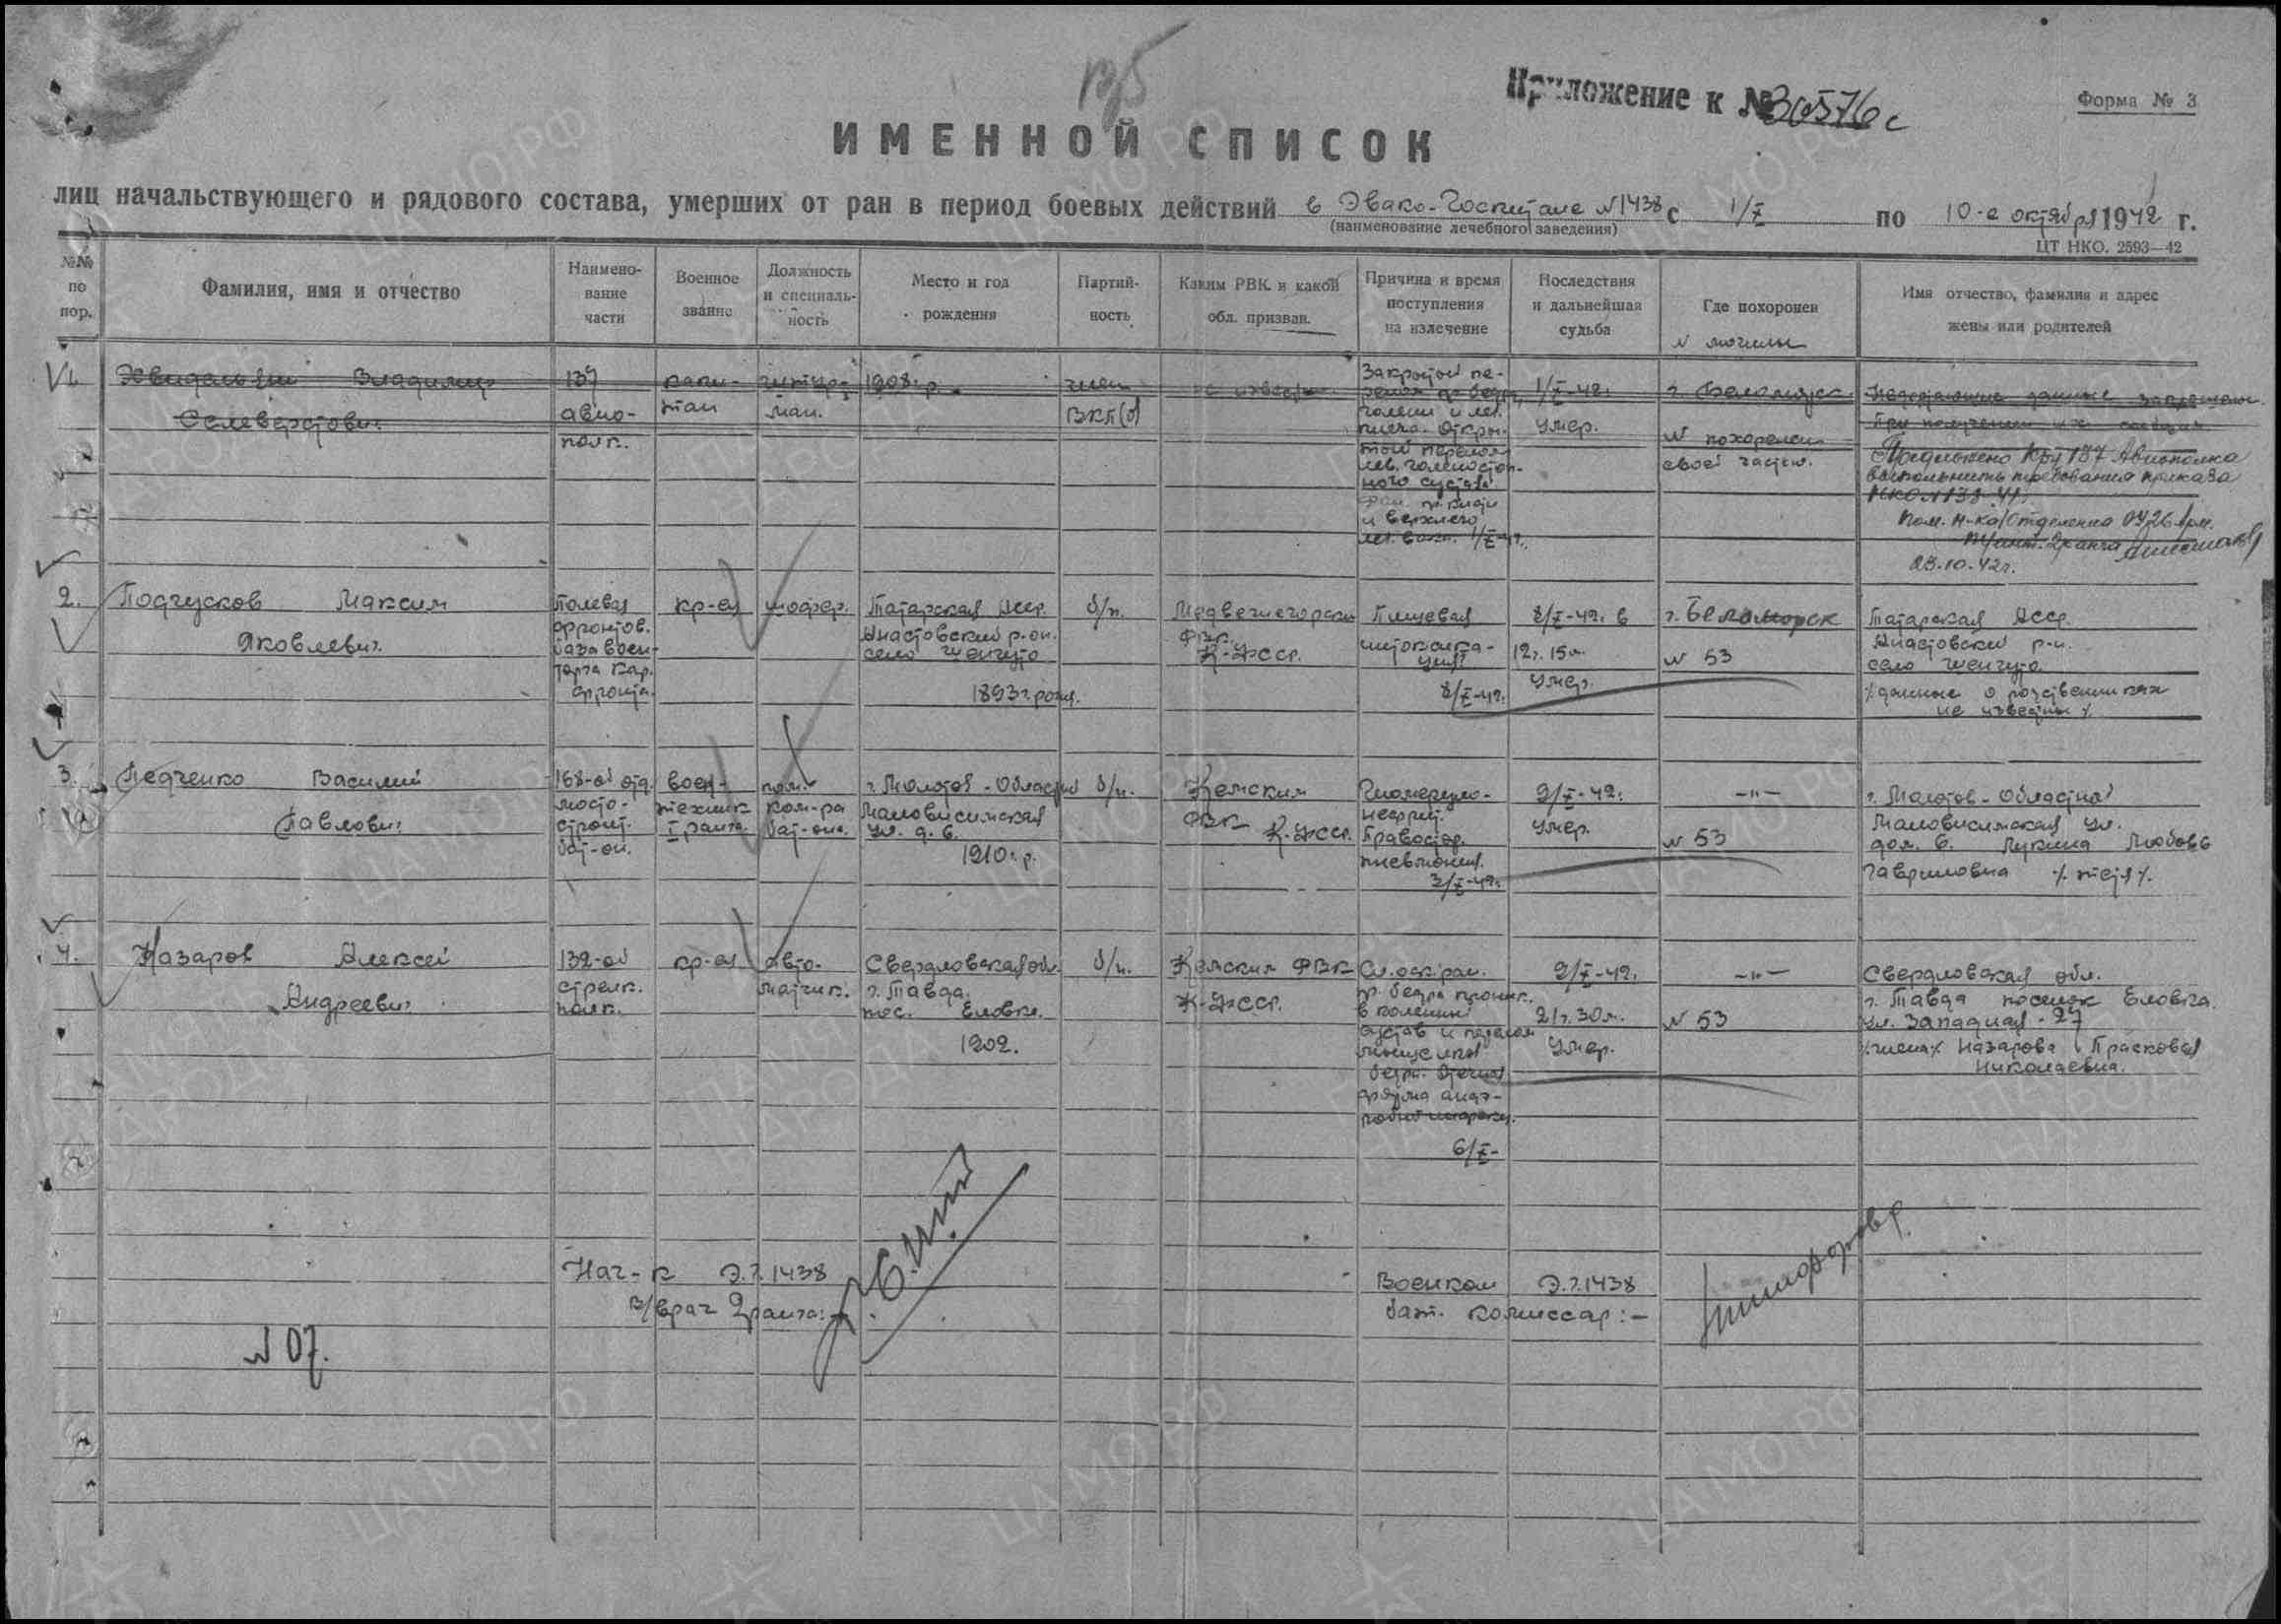 Приложение к № 30576с
Форма № 3
ИМЕННОЙ СПИСОК
лиц начальствующего и рядового состава, умерших от ран в период боевых действий в Эвако-Госпитале №1438 с 1/X по 10-е октября 1942 г.
(наименование лечебного заведения)
ЦТ НКО. 2593—42
№№ по пор.
Фамилия, имя и отчество
Наименование части
Военное звание
Должность и специальность
Место и год рождения
Партийность
Каким РВК и какой обл. призван.
Причина и время поступления на излечение
Последствия и дальнейшая судьба
Где похоронен
№ могилы
Имя отчество, фамилия и адрес жены или родителей
1.
Владимир
Селеверстович
137
авио-
полк.
капи-
тан
1908 г.р.
член
ВКП(б)
не известн.
Закрытый пе-
голени и лев.
плеча. Откры-
тый перелом
лев. голеностоп-
ного сустава.
и верхнего
1/X-42г.
1/X-42г.
умер.
г. Беломорск
похоронен
своей частью.
Недостающие данные запрошены.
При получении их сообщим
Предложено Кру 137 Авиополка
выполнить требования приказа
НКО №138-41г.
Пом. н-ка Отделения ОУ 26 Арм.
23-10-42г.
2.
Подгусков Максим
Яковлевич
Полевая
фронтов.
база воен-
торга Кар.
фронта.
кр-ец
шофер.
Татарская Асср.
Апастовский р-он.
село Шенгуто
1893 г. рожд.
б/п.
Медвежьегорским
ФВК.
К-Фсср.
Пищевая
интоксика-
ция
8/X-42г.
8/X-42г. в
12ч. 15м.
умер.
г. Беломорск
№ 53
Татарская Асср.
Апастовский р-н.
село Шенгуто
% данные о родственниках
не известны %
3.
Педченко Василий
Павлович
168-ой отд.
мосто-
строит.
бат-он.
воен-
техник
I ранга.
пом.
ком-ра
бат-она.
г. Молотов - Областной
Маловисимская
ул. д. 6.
1910 г.р.
б/п.
Кемским
ФВК К-Фсср.
Гломеруло-
нефрит.
Правостор.
пневмония.
3/X-42г.
9/X-42г.
умер.
—"—
№ 53
г. Молотов - Областной
Маловисимская ул.
дом. 6. Лукина Любовь
Гавриловна % тетя %.
4.
Назаров Алексей
Андреевич
132-ой
стрелк.
полк.
кр-ец
авто-
матчик.
Свердловская обл.
г. Тавда.
пос. Еловка.
1902.
б/п.
Кемским ФВК
К-Фсср.
Сл. оск. ран.
пр. бедра проник.
в коленный
сустав и перелом
бедра.
6/X-
9/X-42г.
21ч. 30м.
умер.
—"—
№ 53
Свердловская обл.
г. Тавда поселок Еловка.
ул. Западная - 27
% жена % Назарова Прасковья
Николаевна.
Нач-к Э.Г. 1438
в/врач 2 ранга:-
Военком Э.Г. 1438
бат. комиссар:-
Никифоров
№ 07.